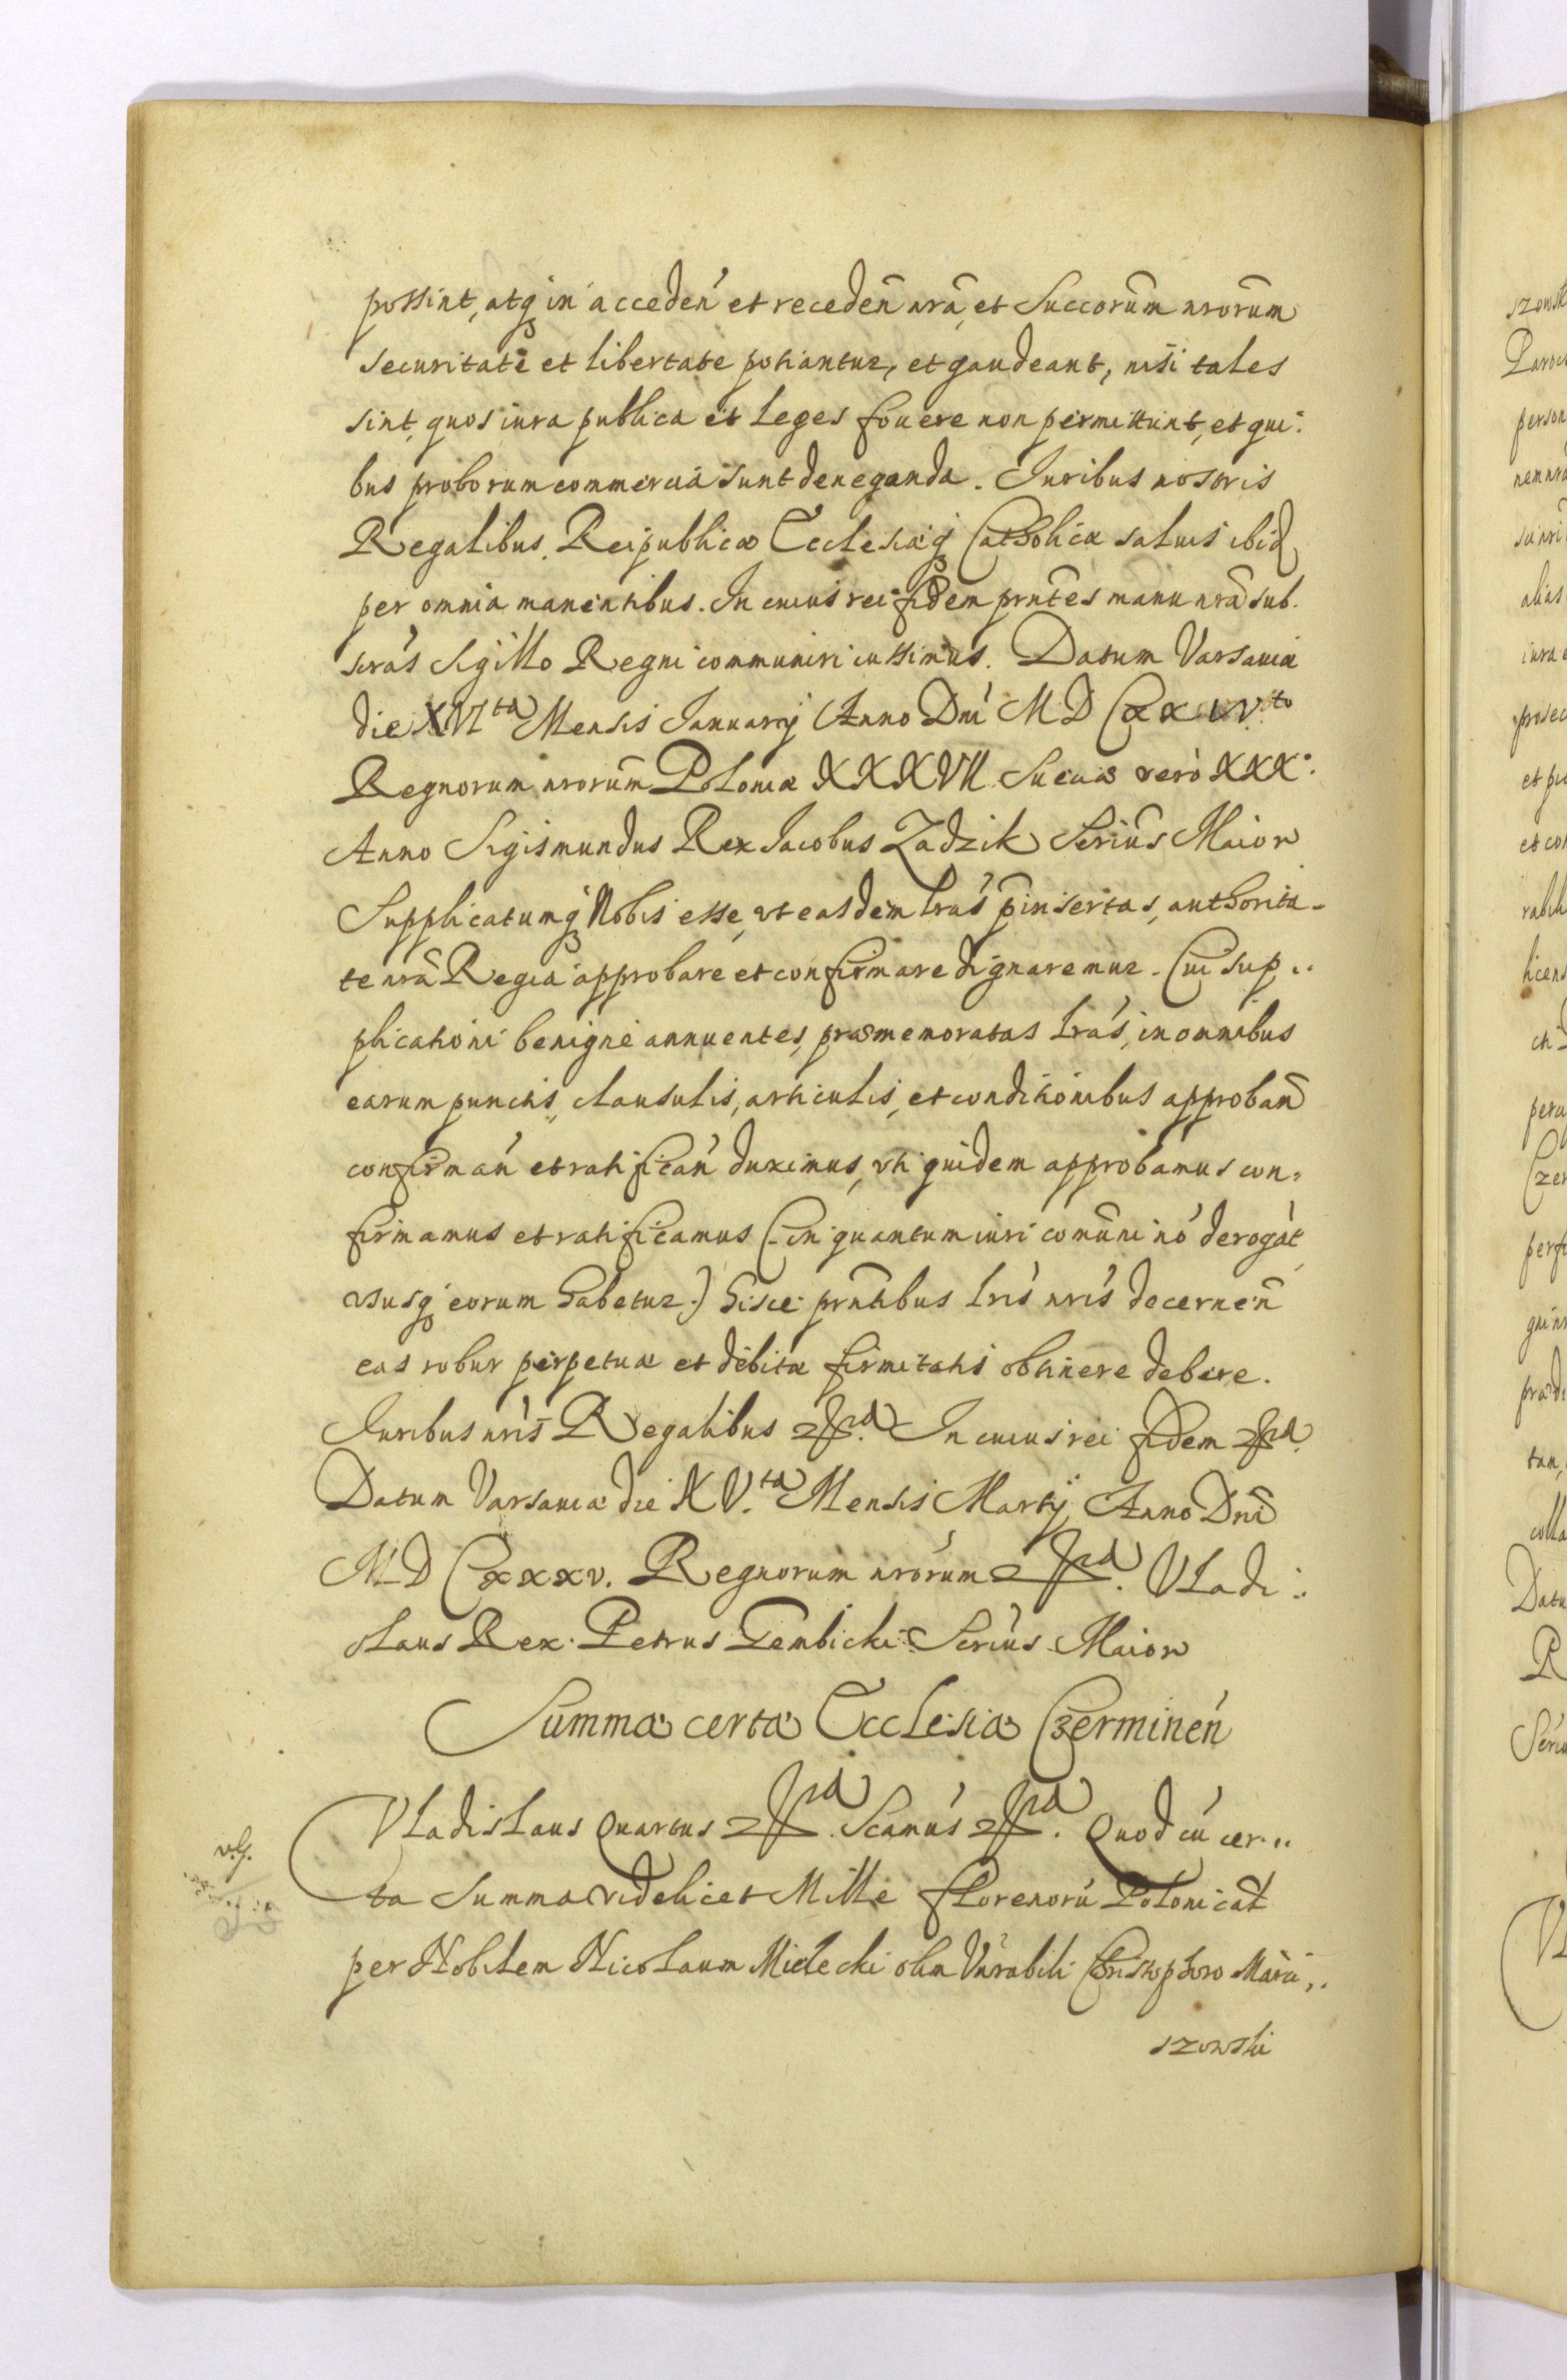 possint, atq in acceden et receden nrã, et Succorum nrorum
securitate et libertate potiantur, et gaudeant, nisi tales
sint, quos iura publica et Leges fouere non permittunt, et qui:
bus proborum commercia sunt deneganda. Iuribus nostris
Regalibus, Reipublicæ Ecclesiæq Catholicæ saluis ibid
per omnia manentibus. In cuius rei fidem prntes manu nrã sub.
scrás Sigillo Regni communiri iussimus. Datum Varsauiæ
die XVIta Mensis Ianuarij Anno Dni MDCXXIVto
Regnorum nrorum Poloniæ XXXVII Sueciæ verò XXX.
Anno Sigismundus Rex Iacobus Zadzik Serius Maior
Supplicatumq Nobis esse, vt easdem Lrás pinsertas, authorita-
te nrã Regia approbare et confirmare dignaremur. Cui sup..
plicationi benignè annuentes, præmemoratas Lrás, in omnibus
earum punctis, clausulis, articulis, et conditionibus approban
confirman et ratifican duximus, vti quidem approbamus con,
firmamus et ratificamus (in quantum iuri comuni nó derogát
vsusq eorum habetur.) hisce prntibus Lris nris decernen
eas robur perpetuæ et debitæ firmitatis obtinere debere.
Iuribus nris Regalibus etc. In cuius rei fidem etc.
Datum Varsauiæ die XV.ta Mensis Martij Anno Dni
MDCXXXV. Regnorum nrorum etc. Vladi:
slaus Rex. Petrus Gembicki Serius Maior
Summa certa Ecclesiæ Czerminen
Vladislaus Quartus etc. Scamus etc. Quod cú cer..
ta Summa videlicet Mille florenorú Polonicat
per Nobilem Nicolaum Mielecki olim Vnrabili Christophoro
szowski